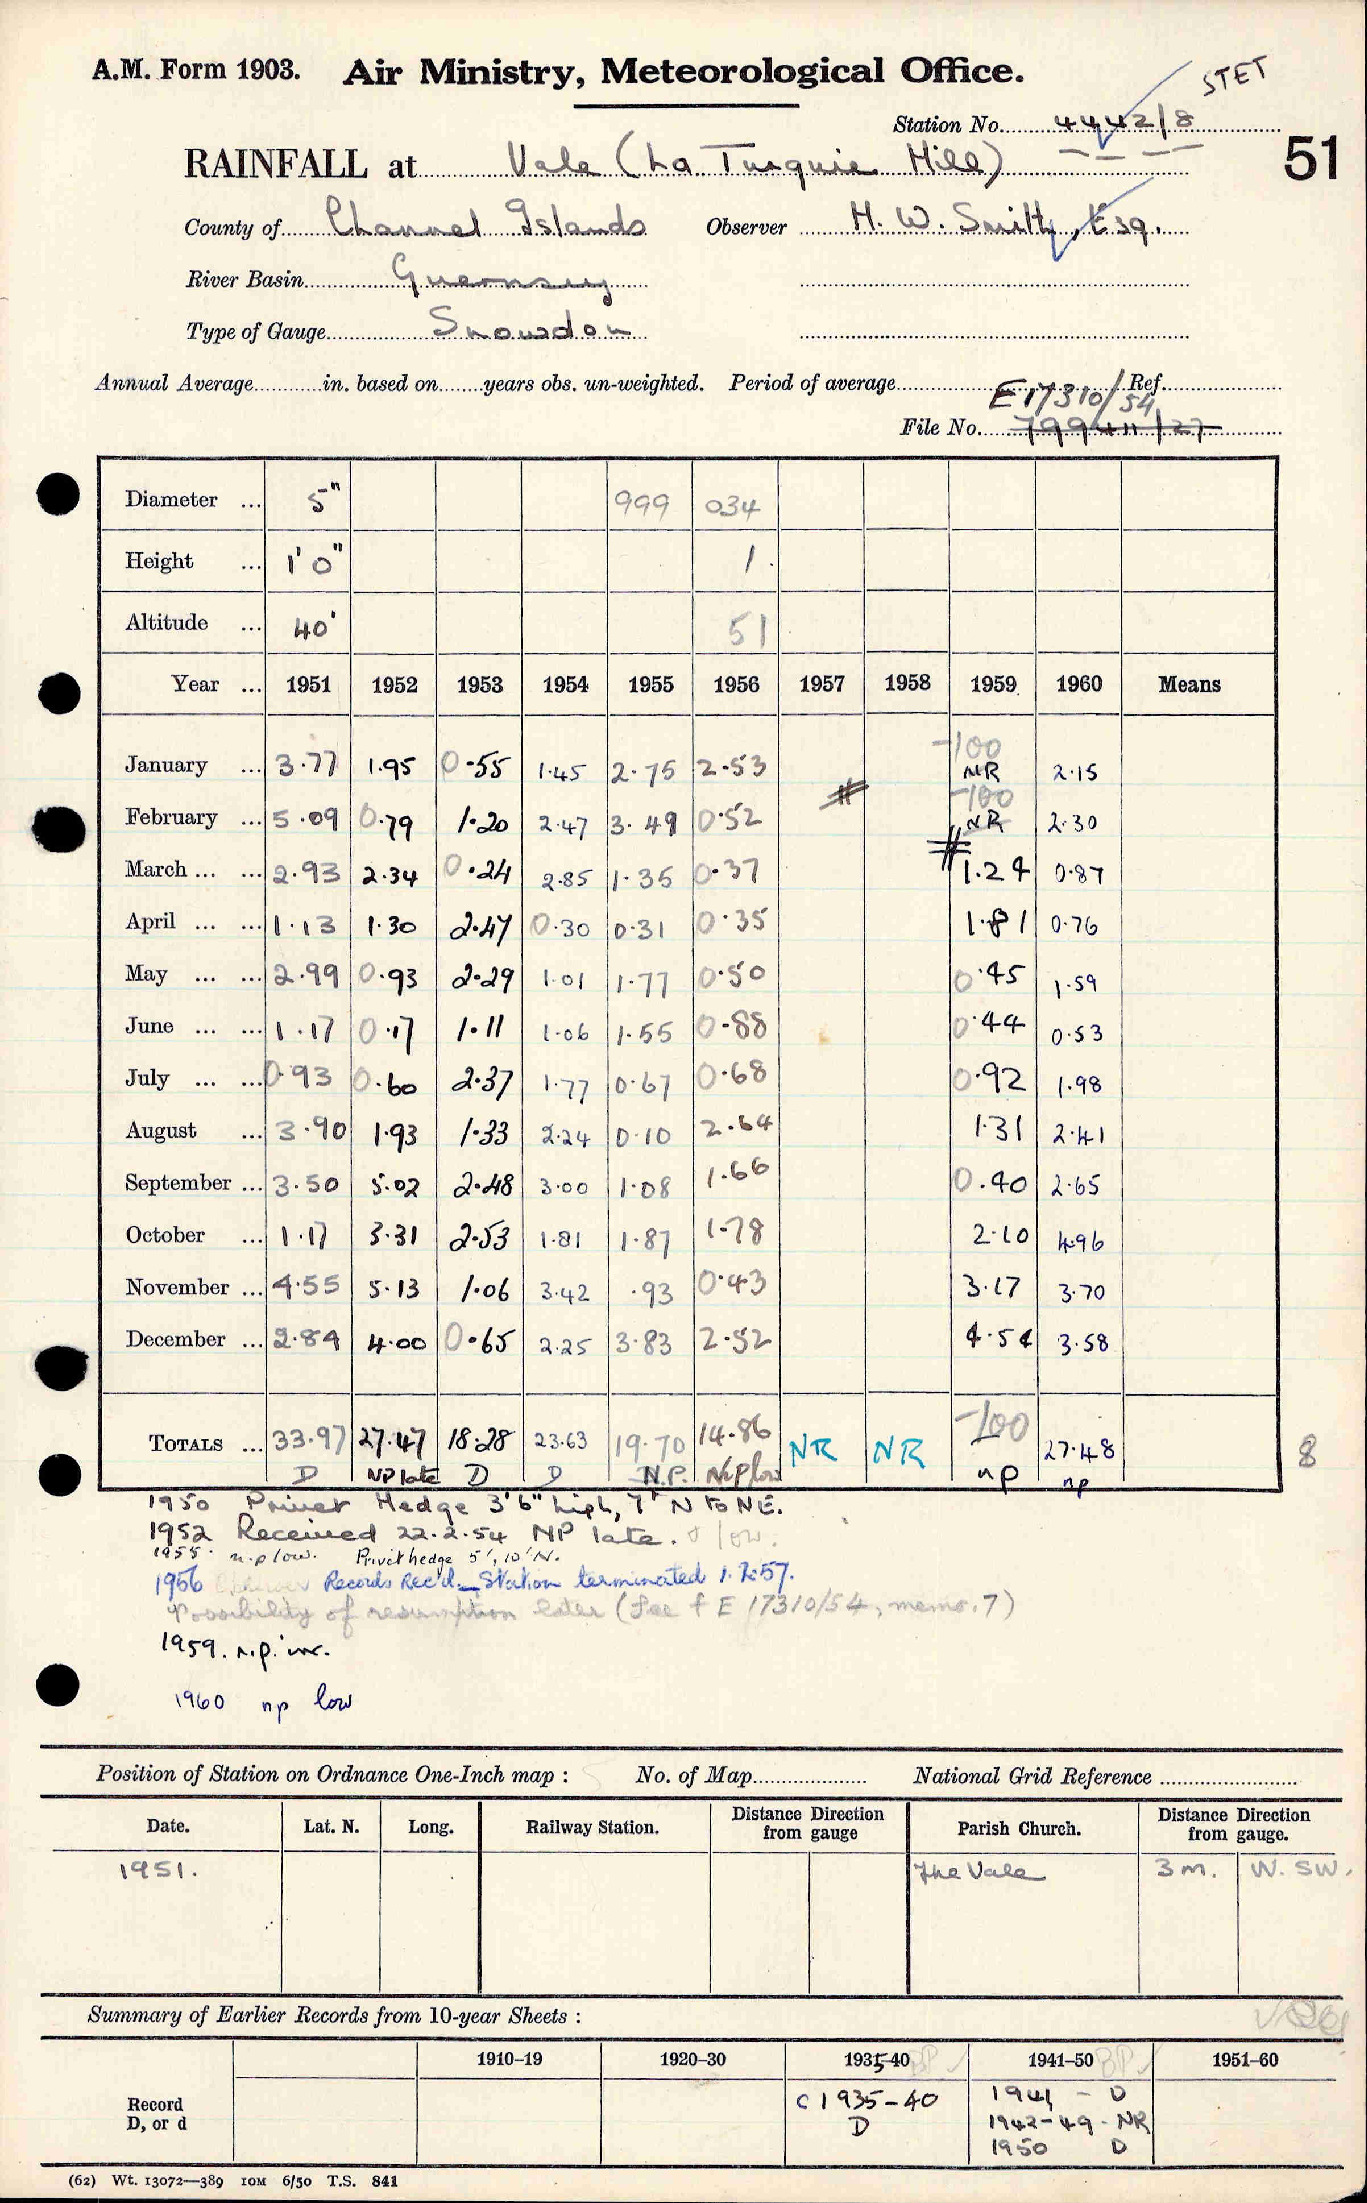 A.M. Form 1903. Air Ministry, Meteorological Office.
STET
Station No. 4442/8
51
RAINFALL at Vale (La Turquie Hill)
County of Channel Islands Observer H. W. Smith, Esq.
River Basin Guernsey
Type of Gauge Snowdon
Annual Average in. based on years obs. un-weighted. Period of average Ref.
E 17310/54
File No. 799411/27
Diameter ... 5" 999 034
Height ... 1' 0" 1.
Altitude ... 40' 51
Year ... 1951 1952 1953 1954 1955 1956 1957 1958 1959 1960 Means
-100
January ... 3.77 1.95 0.55 1.45 2.75 2.53 NR 2.15
-100
February ... 5.09 0.79 1.20 2.47 3.49 0.52 NR 2.30
March ... ... 2.93 2.34 0.24 2.85 1.35 0.37 1.24 0.87
April ... ... 1.13 1.30 2.47 0.30 0.31 0.35 1.81 0.76
May ... ... 2.99 0.93 2.29 1.01 1.77 0.50 0.45 1.59
June ... ... 1.17 0.17 1.11 1.06 1.55 0.88 0.44 0.53
July ... ... 0.93 0.60 2.37 1.77 0.67 0.68 0.92 1.98
August ... 3.90 1.93 1.33 2.24 0.10 2.64 1.31 2.41
September ... 3.50 5.02 2.48 3.00 1.08 1.66 0.40 2.65
October ... 1.17 3.31 2.53 1.81 1.87 1.78 2.10 4.96
November ... 4.55 5.13 1.06 3.42 .93 0.43 3.17 3.70
December ... 2.84 4.00 0.65 2.25 3.83 2.52 4.54 3.58
TOTALS ... 33.97 27.47 18.28 23.63 19.70 14.86 NR NR -100 27.48 8
D NP late D D N.P. N.P low np np
1950 Privet Hedge 3'6" high, 7' N to NE.
1952 Received 22.2.54 NP late. & low.
1955. n.p low. Privet hedge 5', 10' N.
1956 Records Rec'd. Station terminated 1.2.57.
Possibility of resumption later (see f E 17310/54, memo. 7)
1959. n.p. inc.
1960 np low
Position of Station on Ordnance One-Inch map : No. of Map National Grid Reference
Date. Lat. N. Long. Railway Station. Distance Direction from gauge Parish Church. Distance Direction from gauge.
1951. The Vale 3 m. W. SW.
Summary of Earlier Records from 10-year Sheets :
1910–19 1920–30 1935–40 BP 1941–50 BP 1951–60
Record D, or d
c 1935–40 1941 - D
D 1942–49 - NR
1950 D
(62) Wt. 13072—389 10M 6/50 T.S. 841